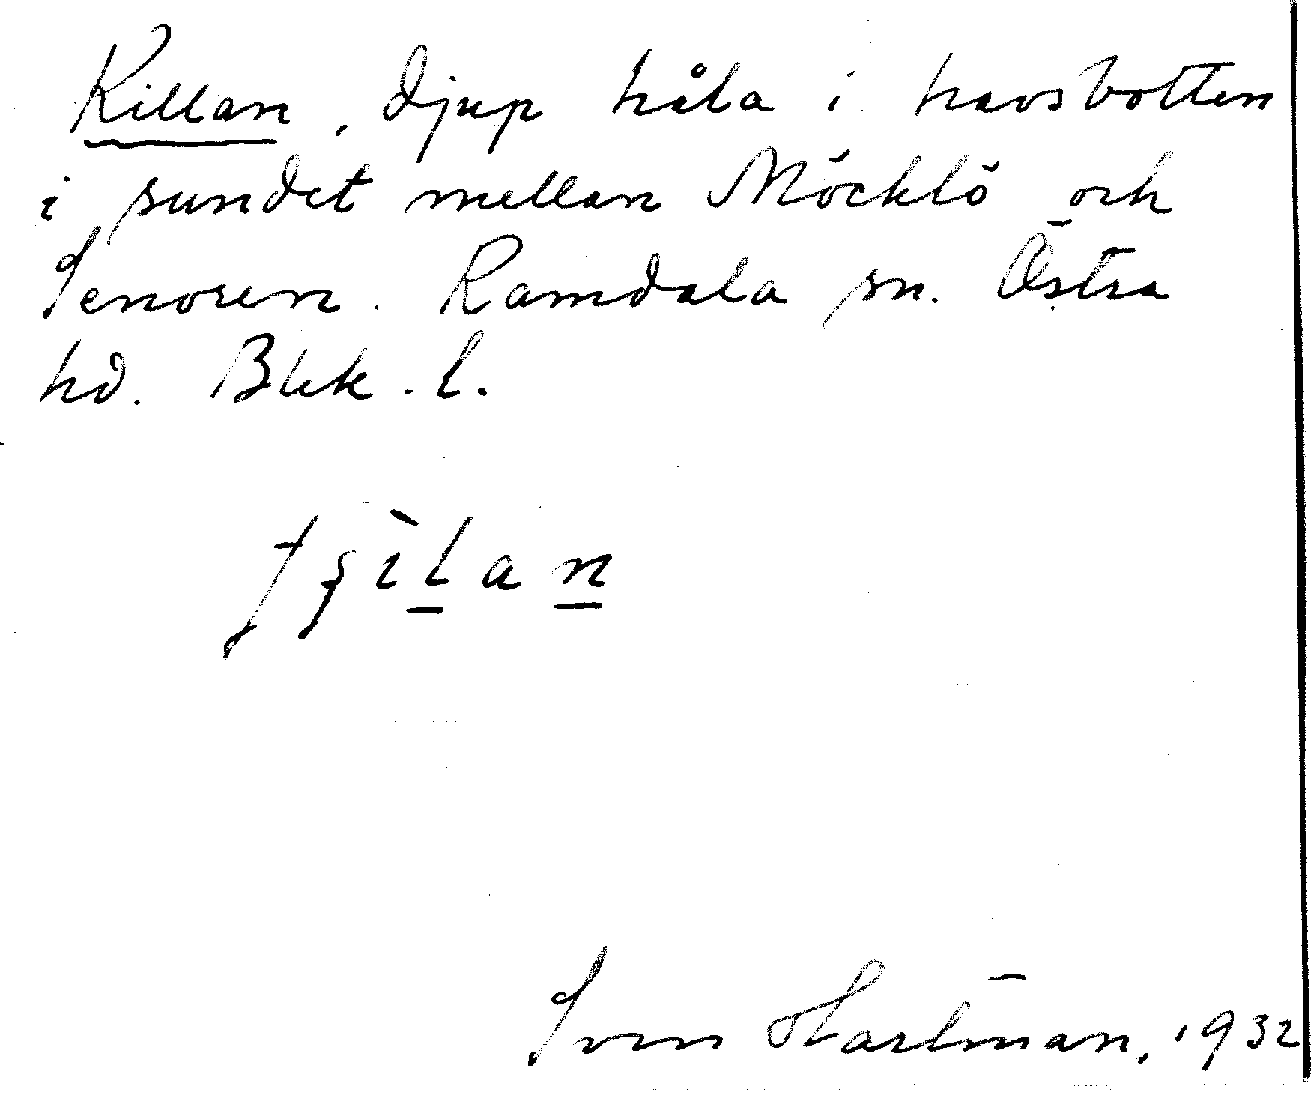 Killan, djup håla i havsbotten
i sundet mellan Möcklö och
Senoren. Ramdala sn. Östra
hd. Blek. l.
Sven Hartman, 1932